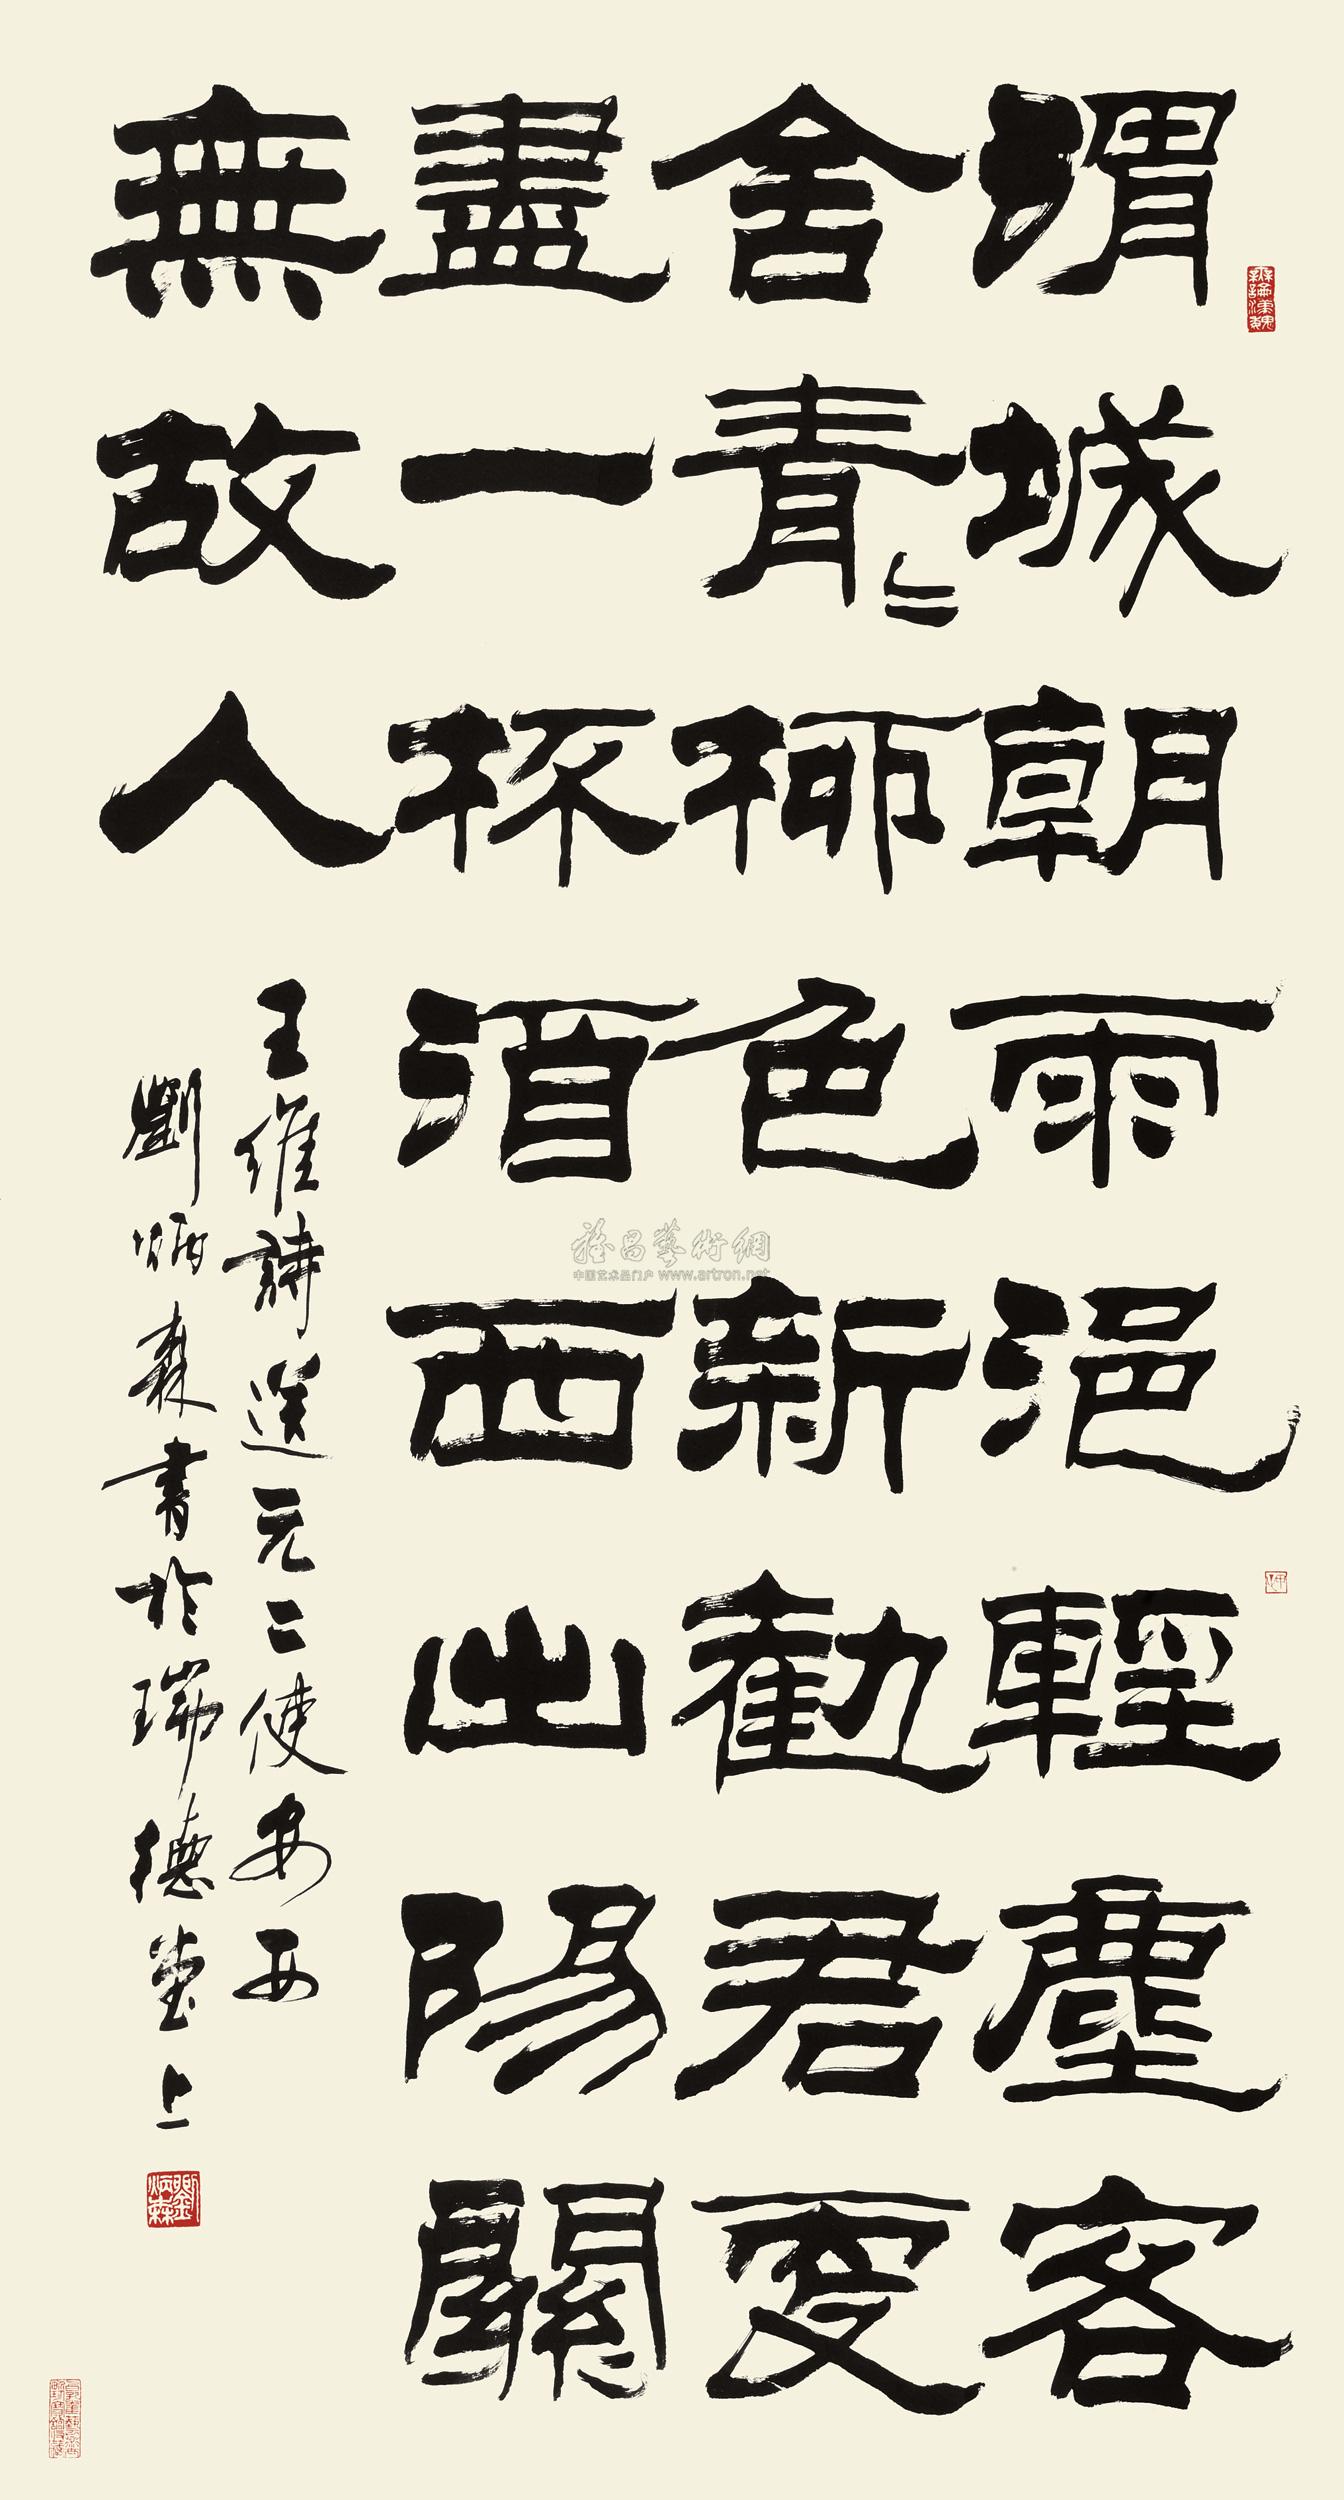 渭城朝雨浥輕塵客
舍青〻柳色新勸君更
盡一杯酒西出陽關
無故人
王維詩送元二使安西
劉炳森書於瑞德堂上
劉炳森
雅昌藝術網
中国艺术品门户 www.artron.net